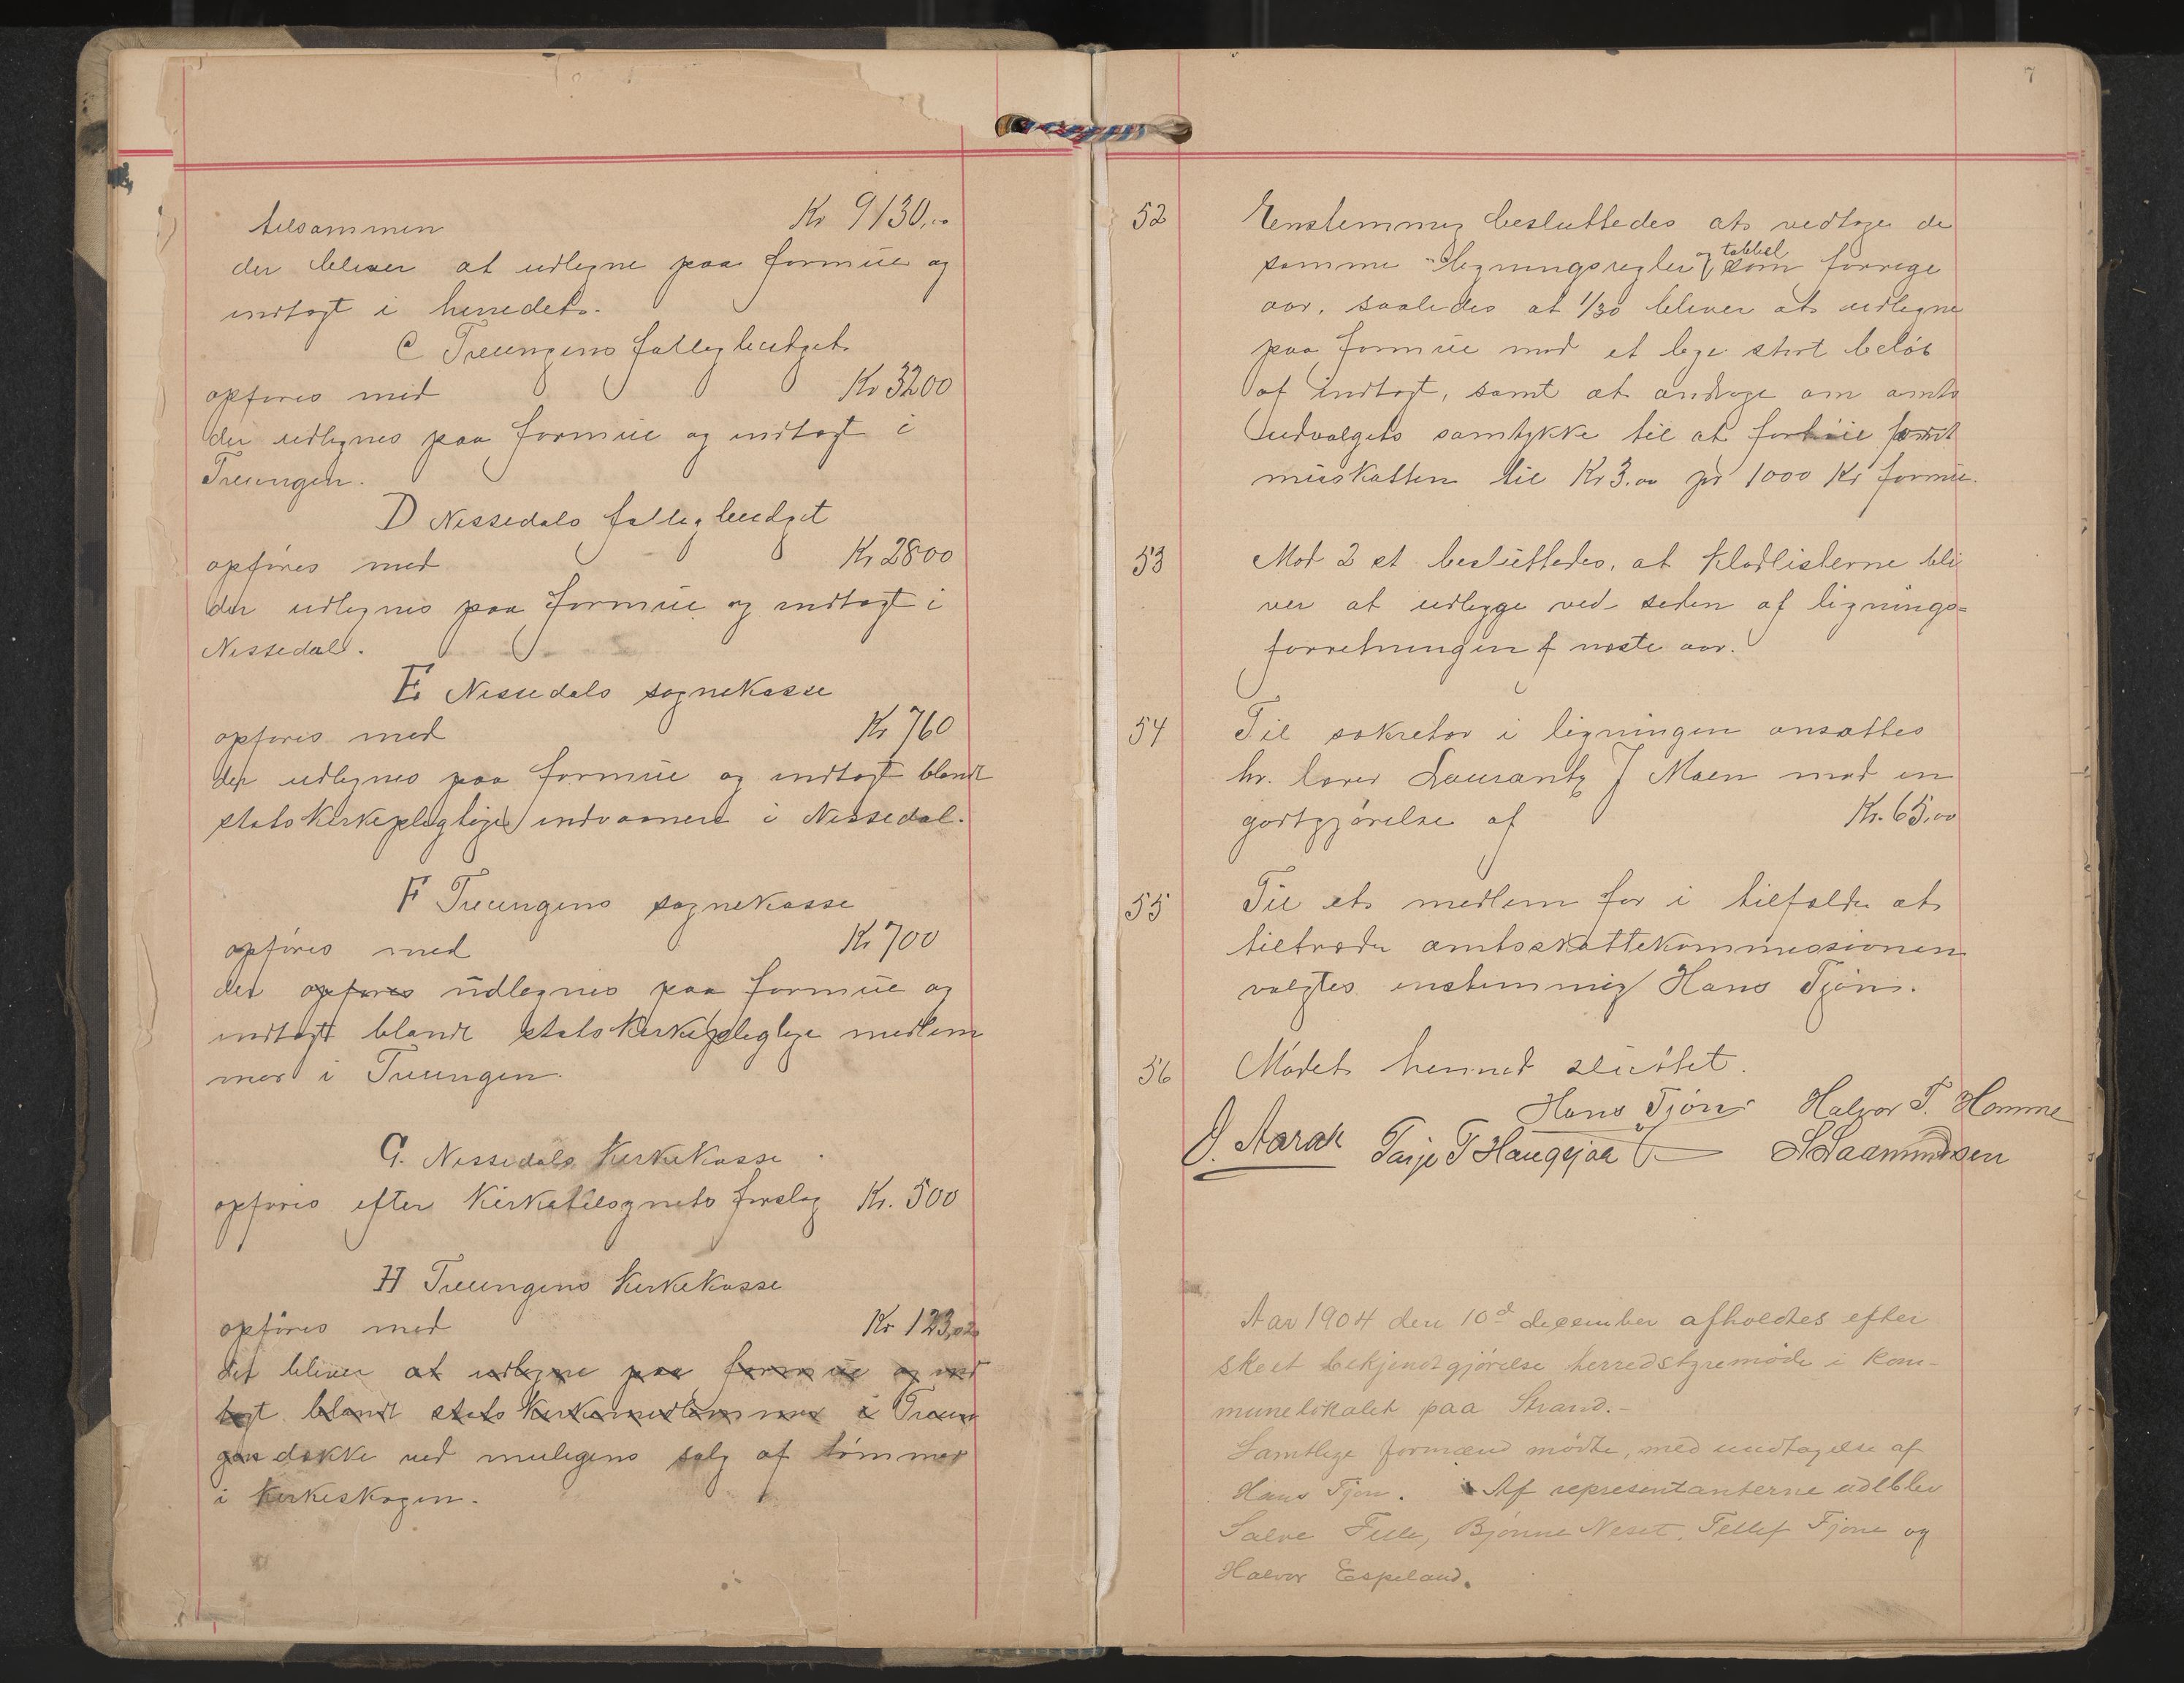 tilsammen Kr 9130,00
der bliver at udligne paa formue og
indtægt i herredet.
C Treungens fællesbudget
opføres med Kr 3200
der udlignes paa formue og indtægt i
Treungen.
D Nissedals fællesbudget
opføres med Kr 2800
der udlignes paa formue og indtægt i
Nissedal.
E Nissedals sognekasse
opføres med Kr 760
der udlignes paa formue og indtægt blandt
statskirkepligtige indvaanere i Nissedal.
F Treungens sognekasse
opføres med Kr 700
der opføres udlignes paa formue og
indtægt blandt statskirkepligtige medlem
mer i Treungen.
G. Nissedals Kirkekasse
opføres efter Kirketilsynets forslag Kr. 500
H Treungens Kirkekasse
opføres med Kr 123,02
det bliver at udligne paa formue og ind
tægt blandt stats kirkemedlemmer i Treun
gen dække ved muligens salg af tømmer
i Kirkeskogen.
7
52 Enstemmig besluttedes at vedtage de
samme ligningsregler og tabbel som forrige
aar, saaledes at 1/30 bliver at udligne
paa formue mod et lige stort beløb
af indtægt, samt at andrage om amts
udvalgets samtykke til at forhøie form
mueskatten til Kr 3.00 pr 1000 Kr formue.
53 Mod 2 st besluttedes, at Kladlisterne bli
ver at udlegge ved siden af lignings=
forretningen f næste aar.
54 Til sekretær i ligningen ansattes
hr. lærer Laurantz J Moen mod en
godtgjørelse af Kr. 65,00
55 Til et medlem for i tilfælde at
tiltræde amtsskattekommissionen
valgtes enstemmig Hans Tjøni.
56 Mødet hermed sluttet.
Hans Tjøni Halvor T. Homme
O. Aarak Tarje T Haugsjaa S Saamundsen
Aar 1904 den 10d december afholdtes efter
skeet bekjendtgjørelse herredstyremøde i kom-
munelokalet paa Strand.-
Samtlige formænd mødte, med undtagelse af
Hans Tjøn. Af representanterne udblev
Salve Felle, Bjønne Neset, Tellef Fjone og
Halvor Espeland.